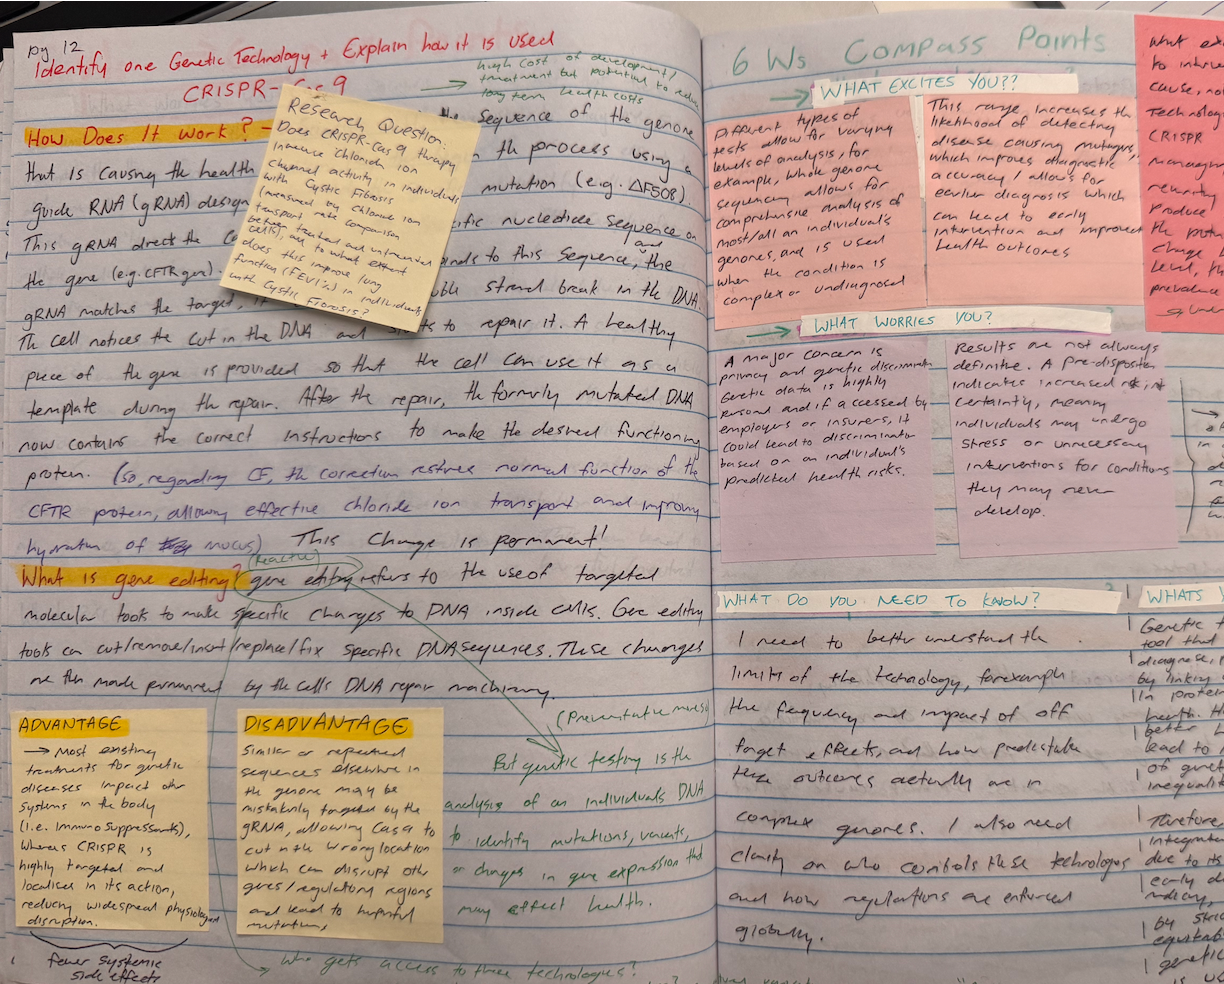 pg 12
Identify one Genetic Technology + Explain how it is used
CRISPR-Cas 9
→ high cost of development/
treatment but potential to reduce
long term health costs
How Does It Work? –
the sequence of the genome
that is causing the health
in the process using a
guide RNA (gRNA) design
mutation (e.g. ΔF508).
This gRNA directs the
specific nucleotide sequence on
the gene (e.g. CFTR gen).
binds to this sequence, and the
gRNA matches the target, it
double strand break in the DNA
The cell notices the cut in the DNA and
to repair it. A healthy
piece of the gene is provided so that the cell can use it as a
template during the repair. After the repair, the formerly mutated DNA
now contains the correct instructions to make the desired functioning
protein. (so, regarding CF, the correction restores normal function of the
CFTR protein, allowing effective chloride ion transport and improving
hydration of mucus) This change is permanent!
(Reactive)
What is gene editing? gene editing refers to the use of targeted
molecular tools to make specific changes to DNA inside cells. Gene editing
tools can cut/remove/insert/replace/fix specific DNA sequences. These changes
are then made permanent by the cells DNA repair machinery.
Research Question:
Does CRISPR-Cas9 therapy
increase chloride ion
channel activity in individuals
with Cystic Fibrosis
(measured by chloride ion
transport rate comparison
between treated and untreated
cells), and to what extent
does this improve lung
function (FEV1%) in individuals
with Cystic Fibrosis?
ADVANTAGE
→ Most existing
treatments for genetic
diseases impact other
systems in the body
(i.e. Immuno suppressants),
whereas CRISPR is
highly targeted and
localised in its action,
reducing widespread physiological
disruption.
fewer systemic
side effects
DISADVANTAGE
Similar or repeated
sequences elsewhere in
the genome may be
mistakenly targeted by the
gRNA, allowing Cas9 to
cut in the wrong location
which can disrupt other
genes/regulatory regions
and lead to harmful
mutations,
(Preventative
But genetic testing is the
analysis of an individuals DNA
to identify mutations, variants,
or changes in gene expression that
may effect health.
→ Who gets access to these technologies?
6 Ws Compass Points
→ WHAT EXCITES YOU??
Different types of
tests allow for varying
levels of analysis, for
example, whole genome
sequencing allows for
comprehensive analysis of
most/all an individual's
genomes, and is used
when the condition is
complex or undiagnosed
This range, increases the
likelihood of detecting
disease causing mutations,
which improves diagnostic
accuracy / allows for
earlier diagnosis which
can lead to early
intervention and improved
health outcomes
→ WHAT WORRIES YOU?
A major concern is
privacy and genetic discrimination
Genetic data is highly
personal and if accessed by
employers or insurers, it
could lead to discrimination
based on an individual's
predicted health risks.
Results are not always
definite. A pre-disposition
indicates increased risk, not
certainty, meaning
individuals may undergo
stress or unnecessary
interventions for conditions
they may never
develop.
WHAT DO YOU NEED TO KNOW?
I need to better understand the
limits of the technology, for example
the frequency and impact of off
target effects, and how predictable
these outcomes actually are in
complex genomes. I also need
clarity on who controls these technologies
and how regulations are enforced
globally.
What ex
to interv
cause, no
Technolog
CRISPR
managing
rewriting
produce
the protei
change
level, th
prevalence
WHATS Y
Genetic t
tool that
diagnose,
by linking
in protein
health. H
better
lead to
of genetic
inequalit
Therefore
integrat
due to its
early d
by stric
equitabl
genetic
is us